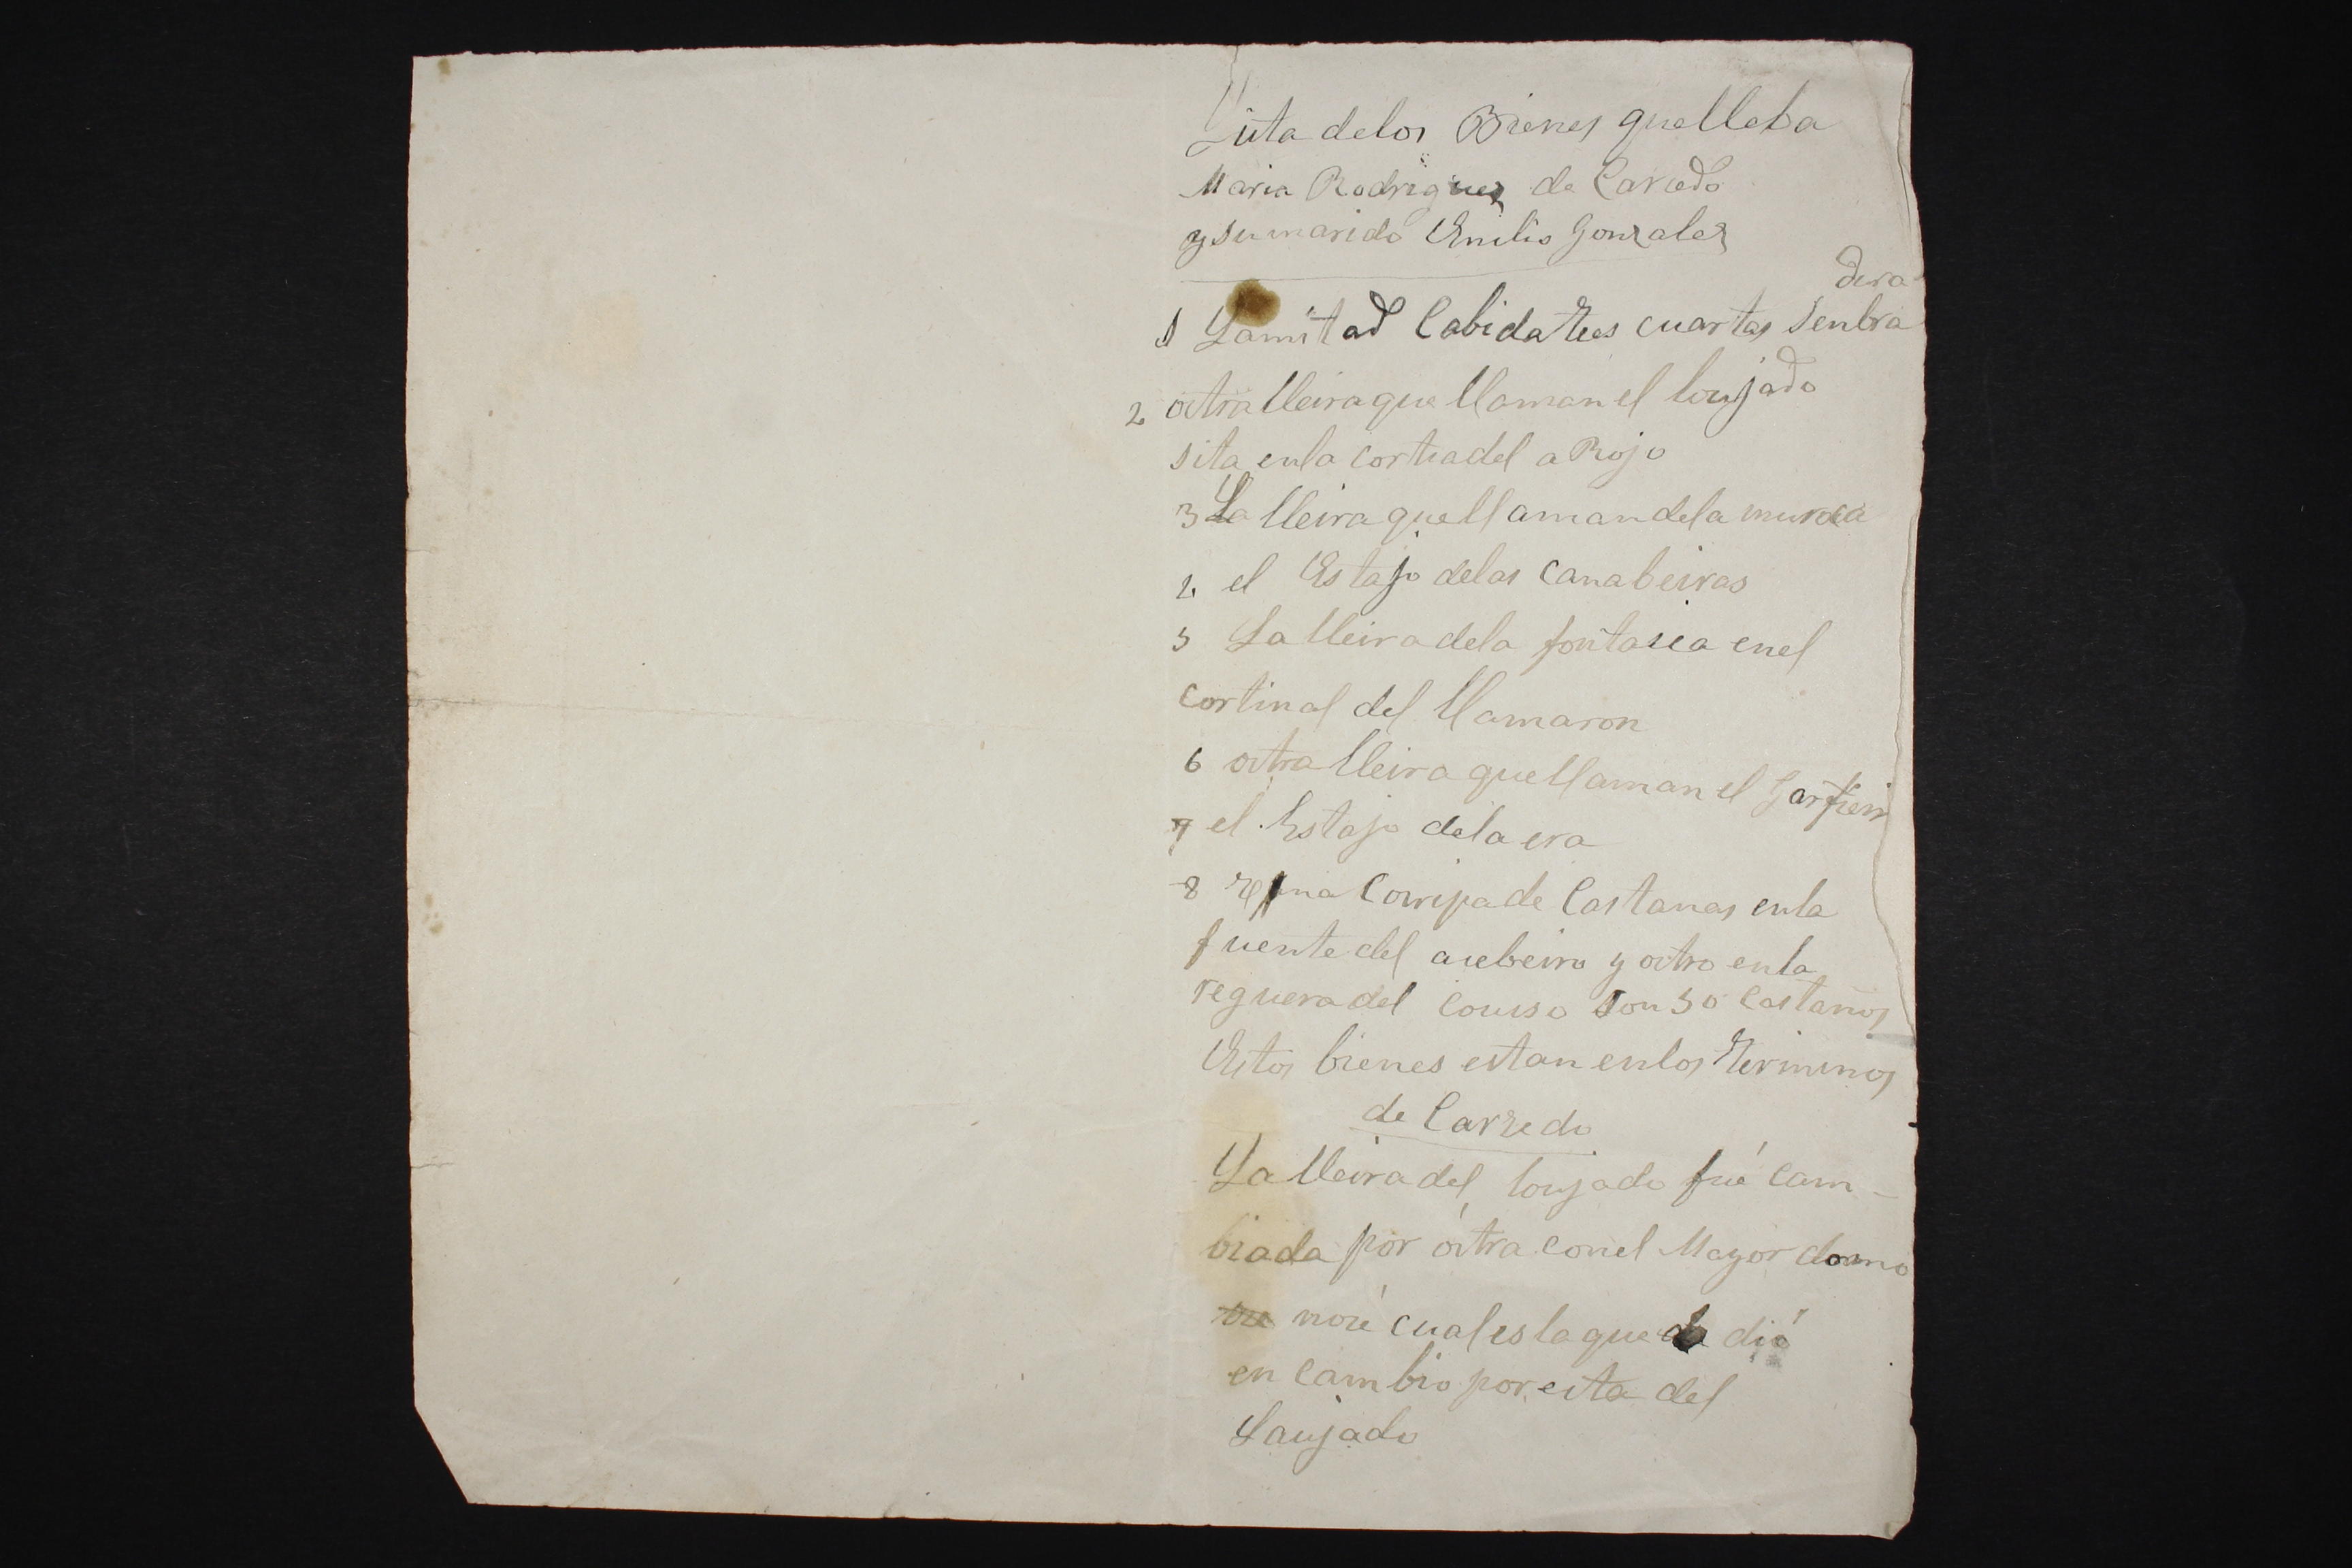 Lista de los Bienes que lleba
Maria Rodriguez de Carcedo
y su marido Emilio Gonzalez
1 La mitad Cabida tres cuartas senbra
dura
2 otra lleira que llaman el loujado
sita en la cortia del a Rojo
3 La lleira que llaman de la muroca
4 el Estajo de las Canabeiras
5 La lleira de la fontasca en el
cortinal del llamaron
6 otra lleira que llaman el
7 el Estajo de la era
8 una de Castanas en la
fuente del acebeiro y otro en la
reguera del Couso son 30 Castaños
Estos bienes estan en los terminos
de Carzedo
La lleira del loujado fué cam-
biada por ótra con el Mayordomo
no sé cual es la que dió
en cambio por esta del
Laujado